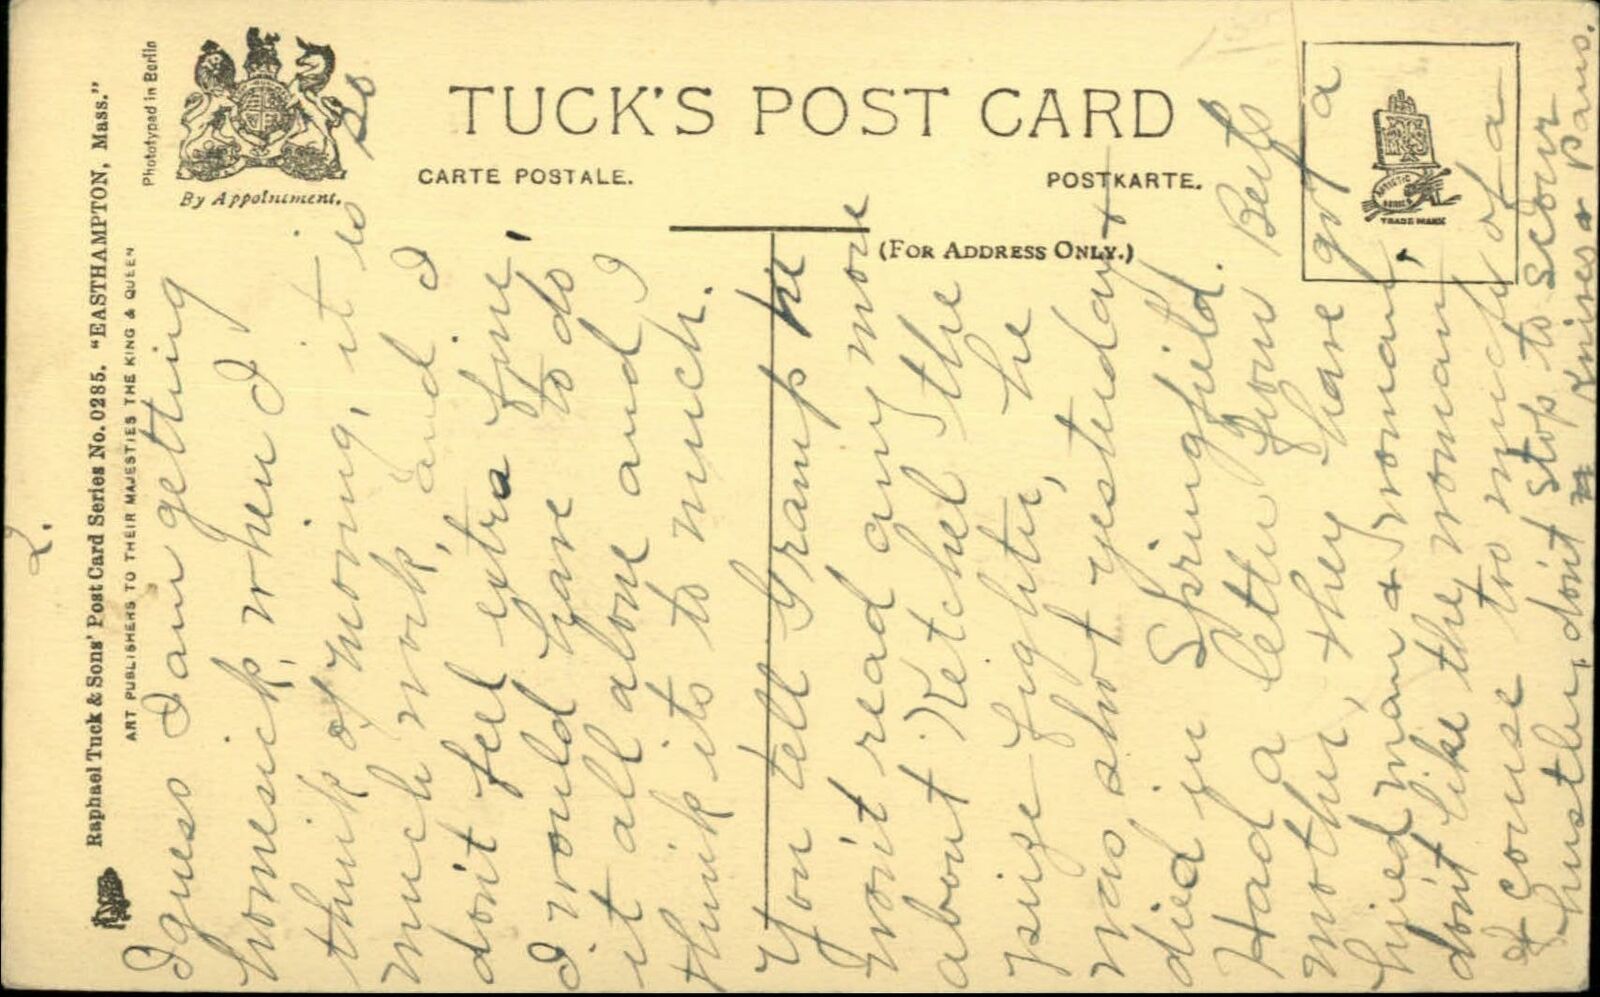 TUCK'S POST CARD
CARTE POSTALE.
POSTKARTE.
(FOR ADDRESS ONLY.)
By Appointment.
ARTISTIC
SERIES
TRADE MARK
Phototyped in Berlin
Raphael Tuck & Sons' Post Card Series No. 0285. "EASTHAMPTON, Mass."
ART PUBLISHERS TO THEIR MAJESTIES THE KING & QUEEN
2.
I guess I am getting
homesick, when I
think of moving, it is so
much work, and I
don't feel extra fine,
I would have to do
it all alone and I
think its to much.
You tell Gramp he
won't read any more
about Ketchel the
prize fighter, he
was shot yesterday &
died in Springfield.
Had a letter from Berts
mother, they have got a
hired man & woman,
don't like the woman
of course to much of a
hustler, don't stop to scour
knives & pans.